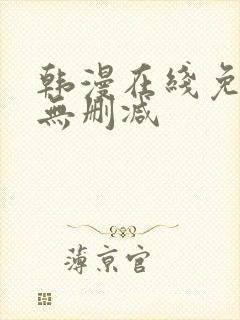 韩漫在线免
無删减
薄京官